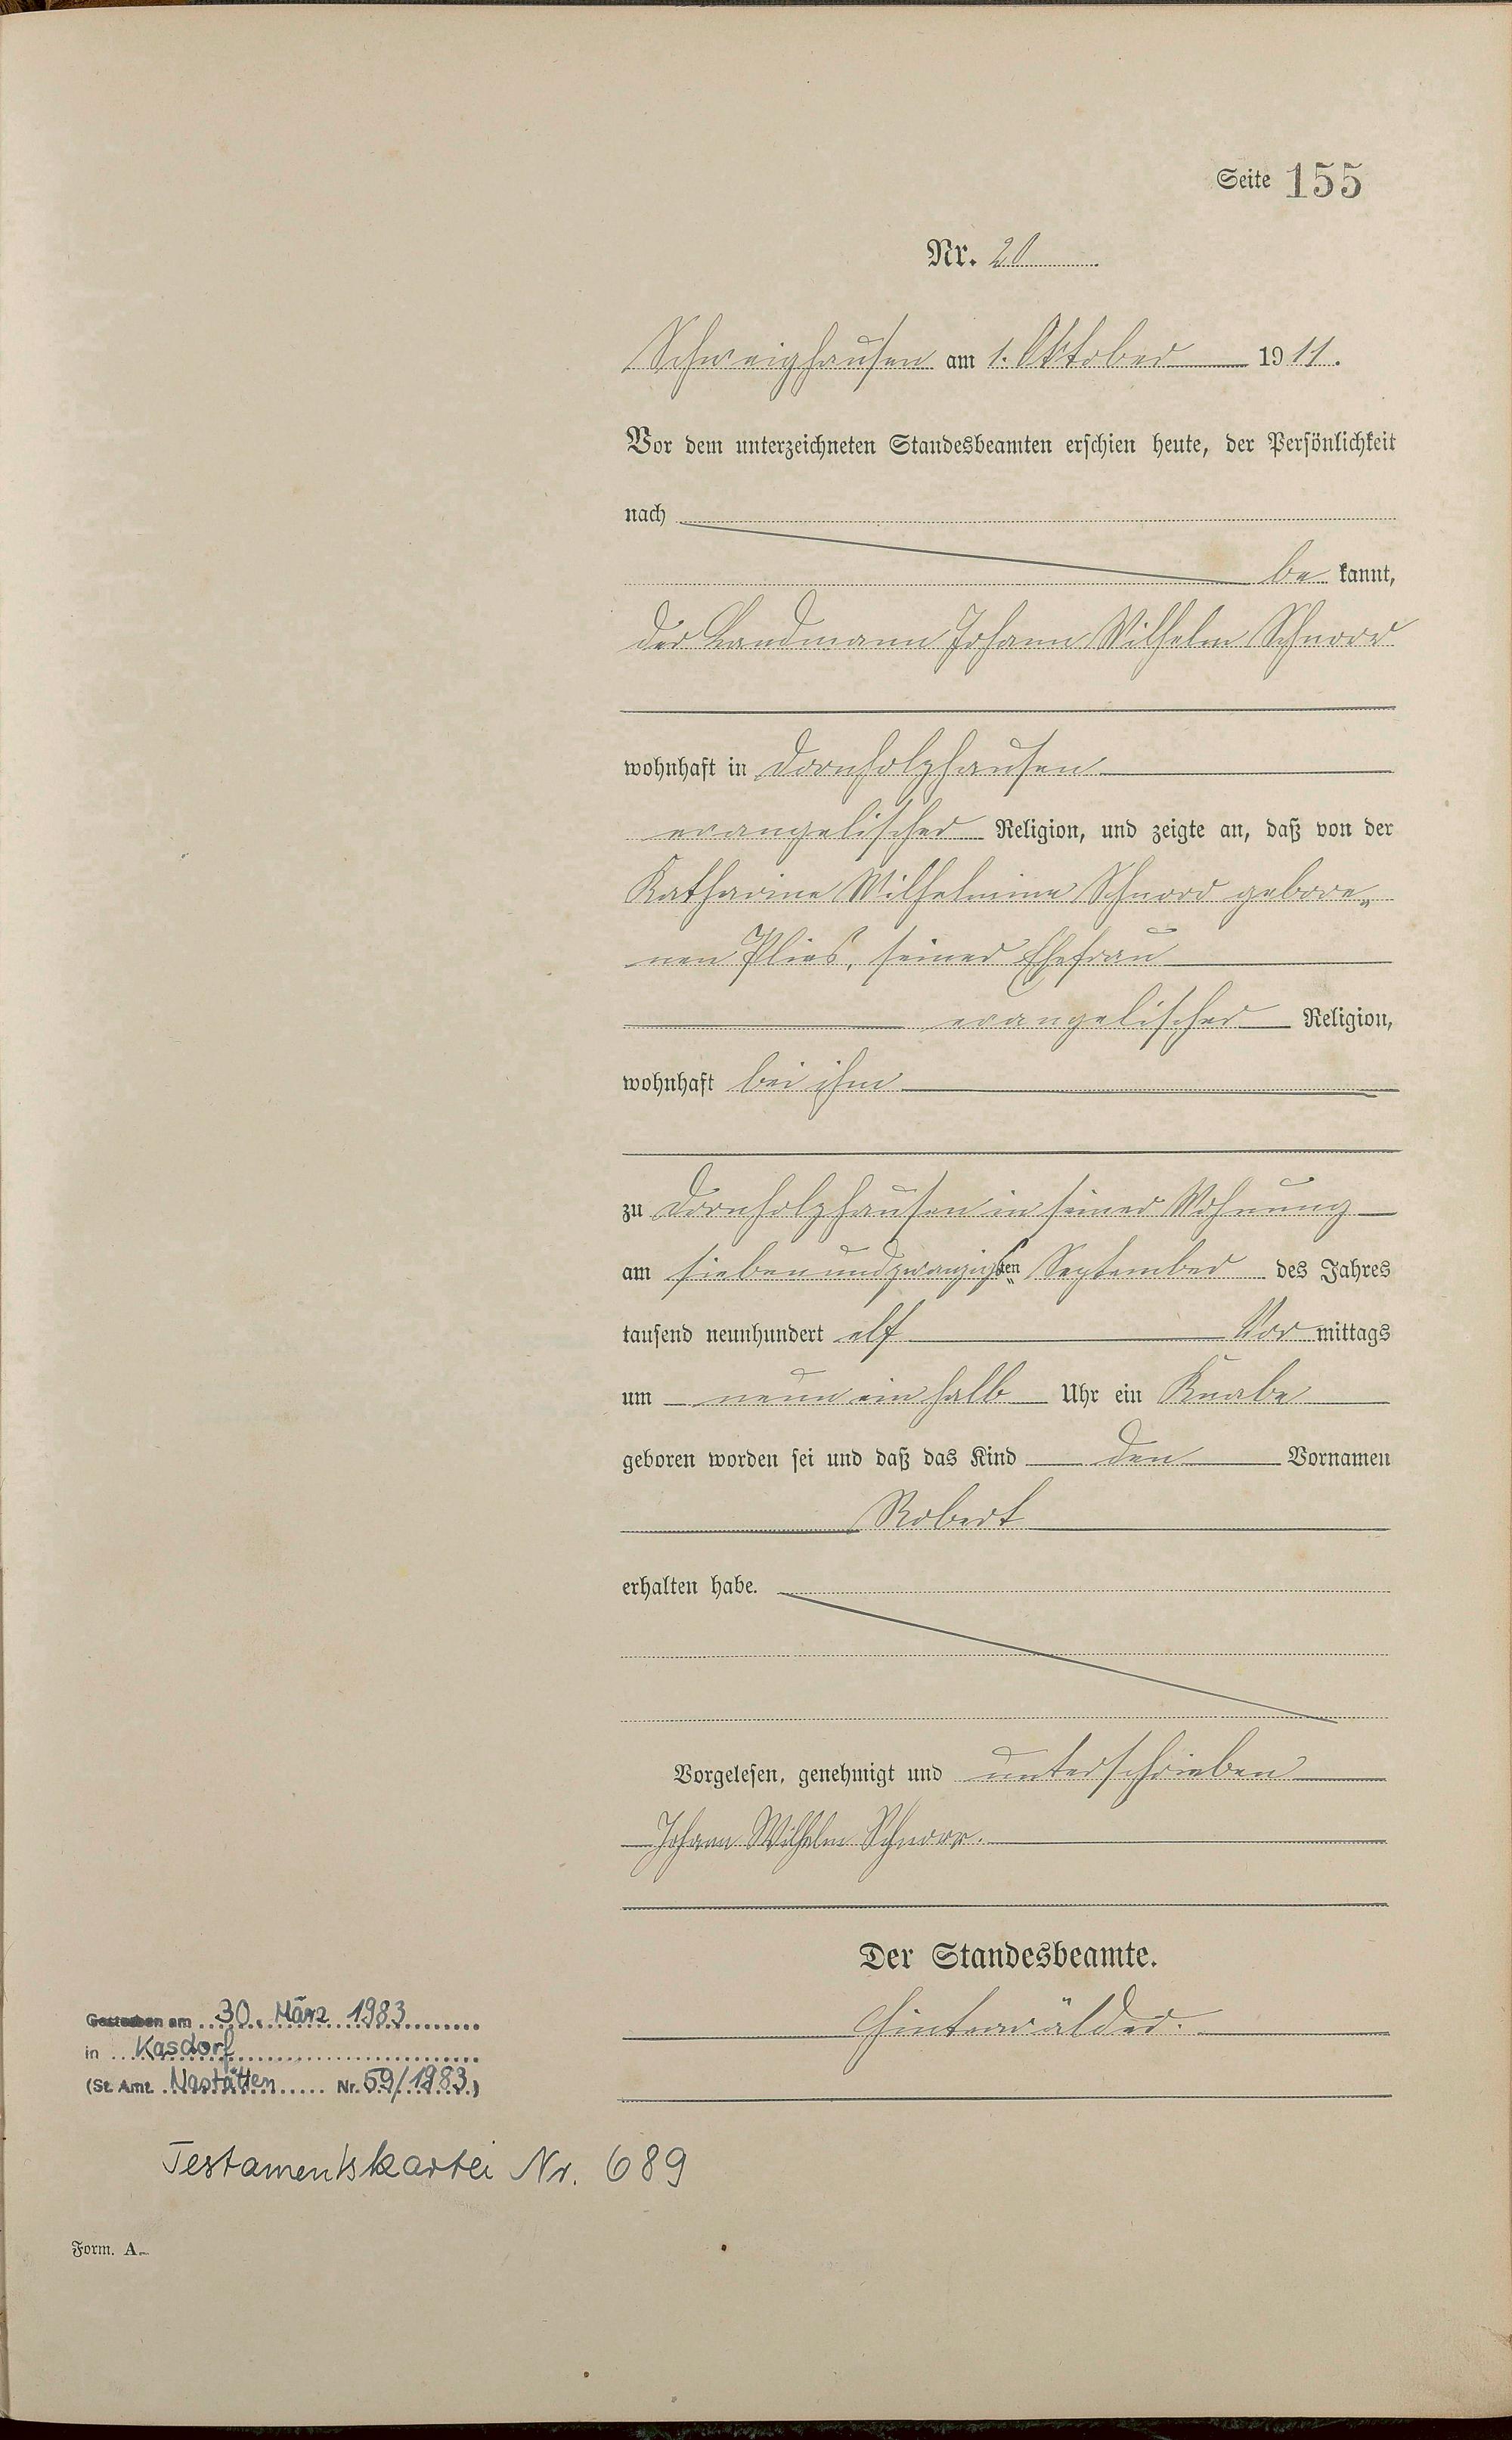 Seite 155
Nr. 20
Schweighausen am 1. Oktober 1911.
Vor dem unterzeichneten Standesbeamten erschien heute, der Persönlichkeit
nach
be kannt,
der Landmann Johann Wilhelm Schnorr
wohnhaft in Dornholzhausen
evangelischer Religion, und zeigte an, daß von der
Katharine Wilhelmine Schnorr gebore„
nen Plies, seiner Ehefrau
evangelischer Religion,
wohnhaft bei ihm
zu Dornholzhausen in seiner Wohnung
am siebenundzwanzigsten September des Jahres
tausend neunhundert elf Vor mittags
um neun ein halb Uhr ein Knabe
geboren worden sei und daß das Kind den Vornamen
Robert
erhalten habe.
Vorgelesen, genehmigt und unterschrieben
Johann Wilhelm Schnorr.
Der Standesbeamte.
Hinterwälder.
Gestorben am 30. März 1983
in Kasdorf
(St. Amt Nastätten Nr. 59/1983)
Testamentskartei Nr. 689
Form. A.